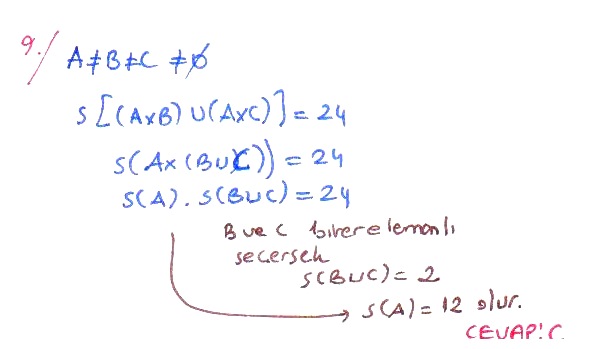 9./ A≠B≠C ≠∅
s[(AxB) ∪ (AxC)] = 24
s(Ax(B∪C)) = 24
s(A) . s(B∪C) = 24
B ve C birer elemanlı
seçersek
s(B∪C) = 2
s(A) = 12 olur.
CEVAP: C